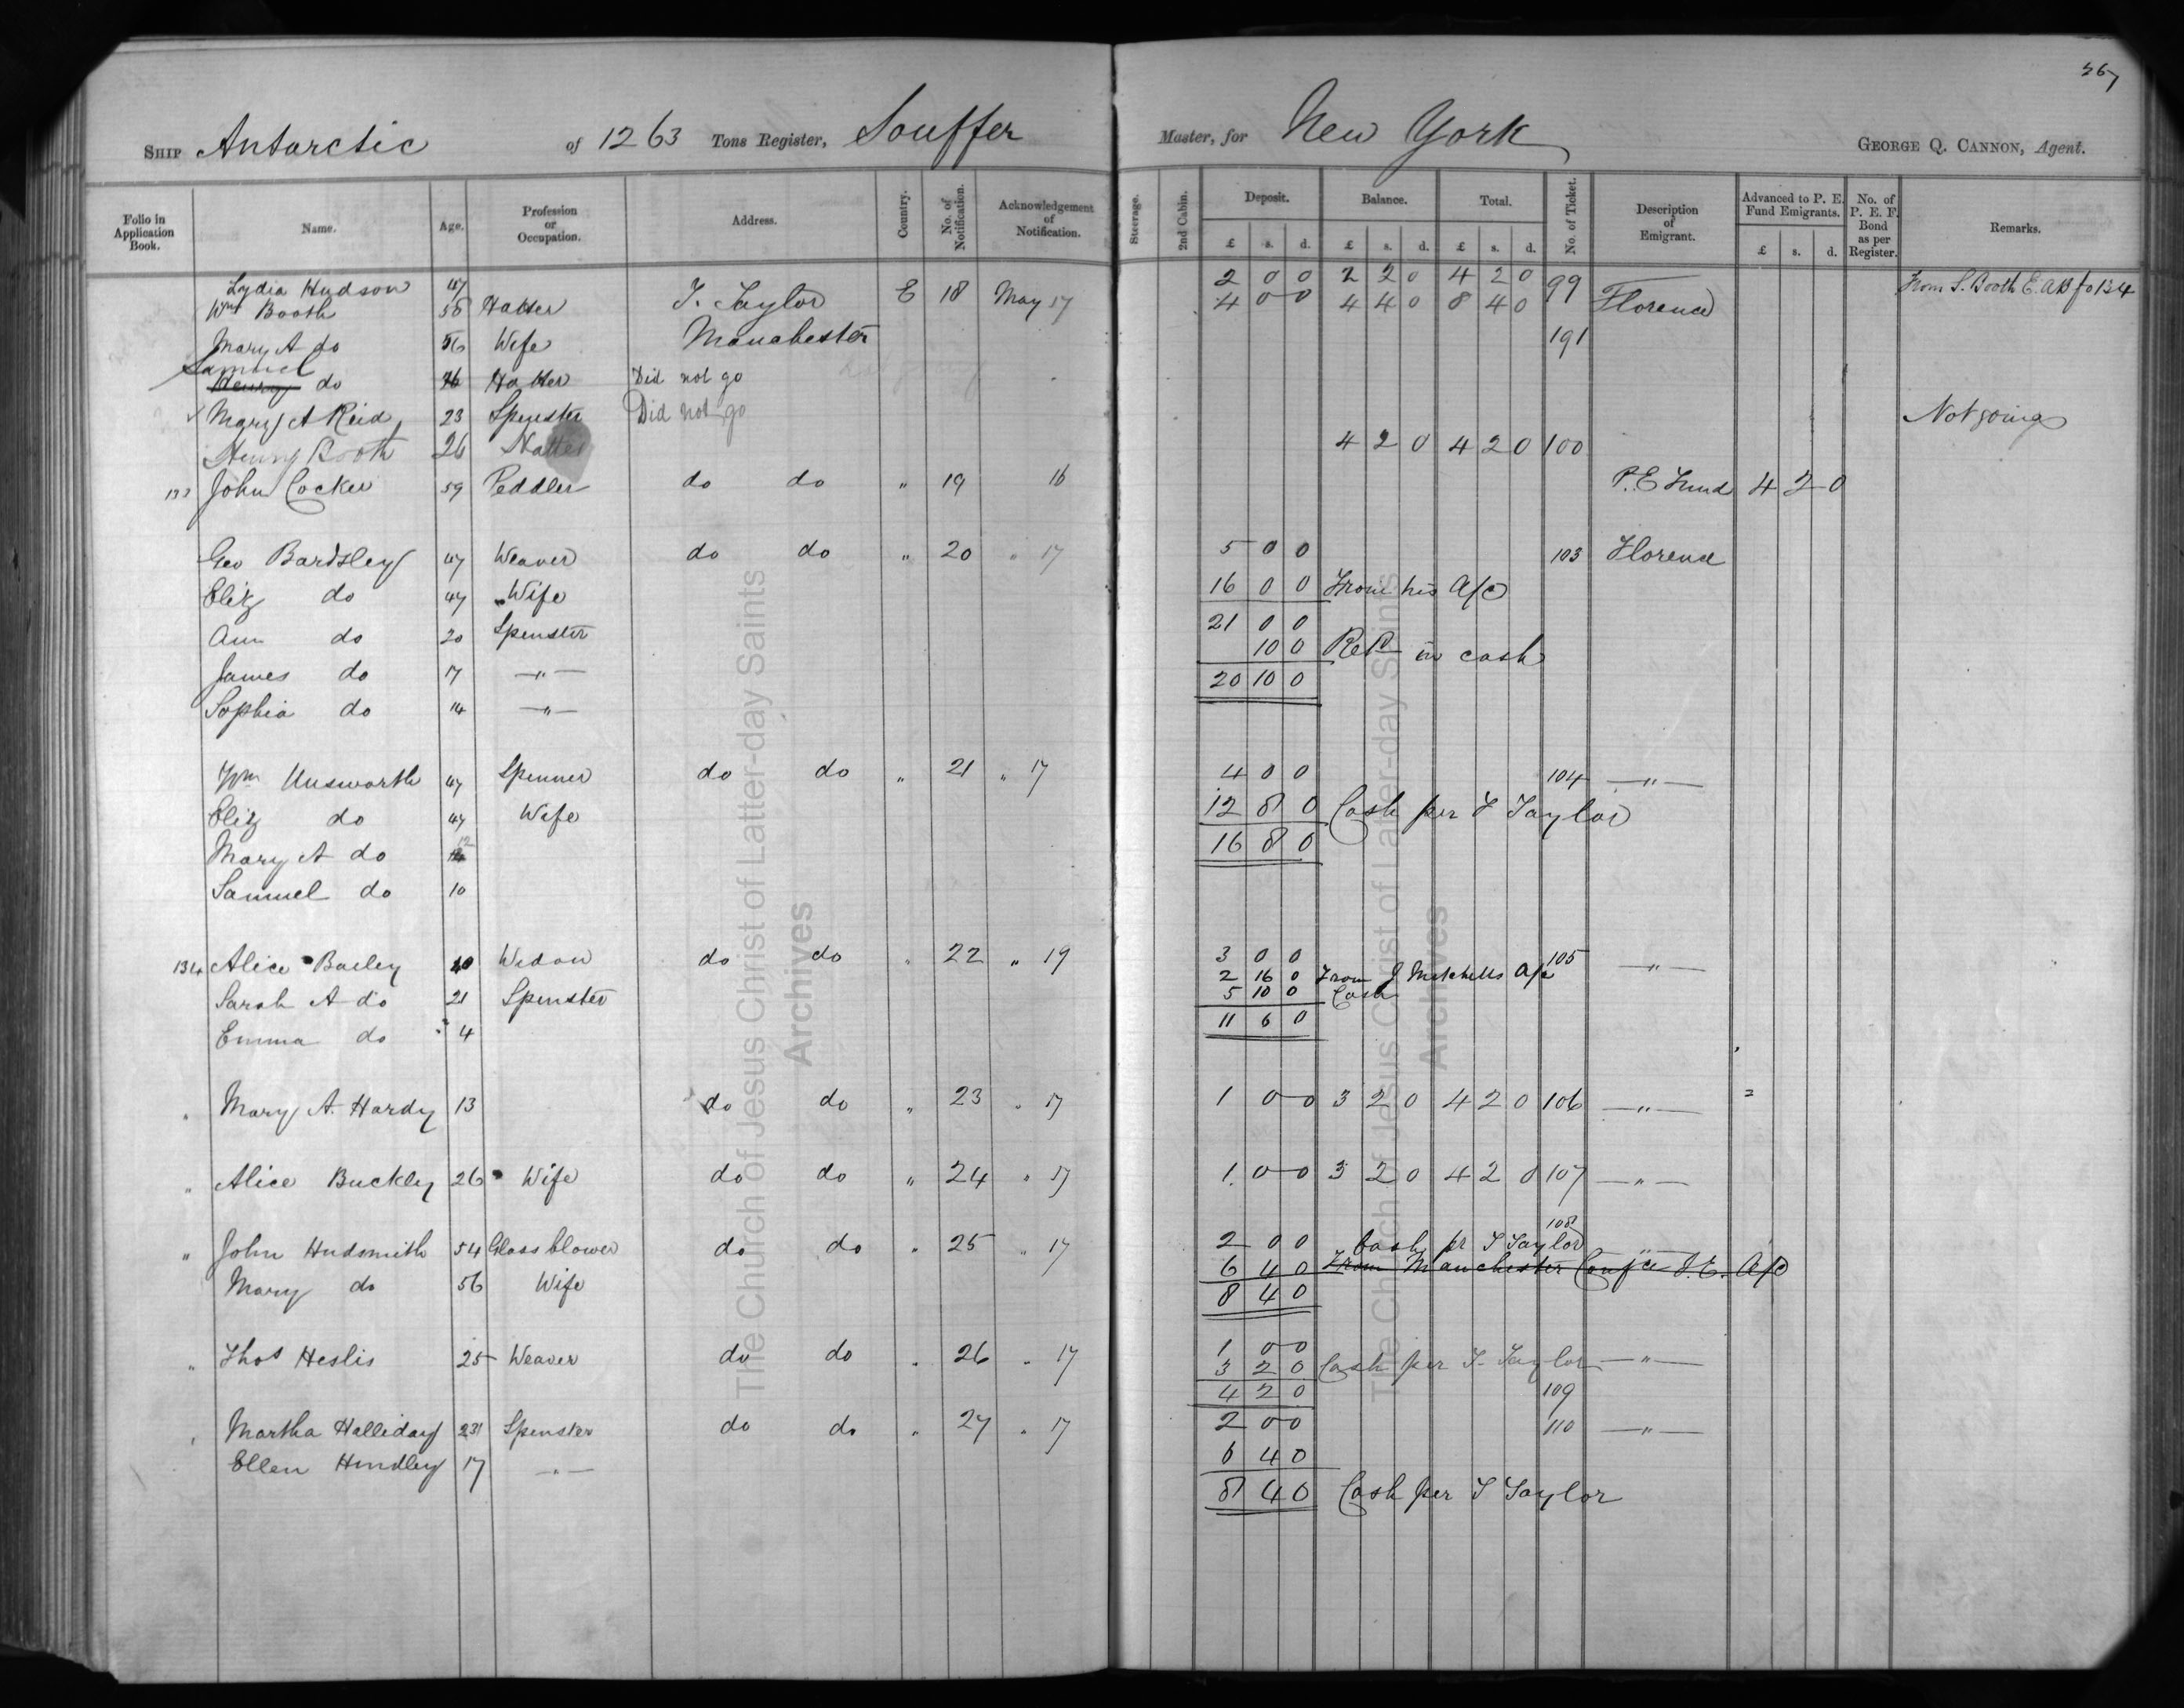 367
SHIP Antarctic of 1263 Tons Register, Souffer Master, for New York GEORGE Q. CANNON, Agent.
Folio in Application Book. Name. Age. Profession or Occupation. Address. Country. No. of Notification. Acknowledgement of Notification. Steerage. 2nd Cabin. Deposit. Balance. Total. No. of Ticket. Description of Emigrant. Advanced to P. E. Fund Emigrants. No. of P. E. F. Bond as per Register. Remarks.
£ s. d. £ s. d. £ s. d. £ s. d.
Lydia Hudson 47 2 0 0 2 2 0 4 2 0 99 From S. Booth E. A B fo 134
Wm Booth 58 Hatter T. Taylor E 18 May 17 4 0 0 4 4 0 8 4 0 Florence
Mary A do 56 Wife Manchester 191
Samuel
Henry do Hatter Did not go
Mary A Reid 23 Spinster Did not go Not going
Henry Booth 26 Hatter 4 2 0 4 2 0 100
133 John Cocker 59 Peddler do do " 19 16 P. E Fund 4 2 0
Geo Bardsley 47 Weaver do do " 20 " 17 5 0 0 103 Florence
Eliz do 47 Wife 16 0 0 From his A/c
Ann do 20 Spinster 21 0 0
10 0 Retd in cash
James do 17 —"— 20 10 0
Sophia do 14 —"—
Wm Unsworth 47 Spinner do do " 21 " 17 4 0 0 104 —"—
Eliz do 47 Wife 12 8 0 Cash per T Taylor
Mary A do 12 16 8 0
Samuel do 10
134 Alice Bailey 40 Widow do do " 22 " 19 3 0 0 105 —"—
2 16 0 From J Mitchells A/c
Sarah A do 21 Spinster 5 10 0 Cash
Emma do 4 11 6 0
" Mary A. Hardy 13 do do " 23 " 17 1 0 0 3 2 0 4 2 0 106 —"—
" Alice Buckley 26 Wife do do " 24 " 17 1 0 0 3 2 0 4 2 0 107 —"—
108
" John Hudsmith 54 Glass blower do do " 25 " 17 2 0 0 Cash pr T Taylor
6 4 0 From Manchester Confce I. E. A/c
Mary do 56 Wife 8 4 0
" Thos Heslis 25 Weaver do do " 26 " 17 1 0 0
3 2 0 Cash per T. Taylor —"—
4 2 0 109
" Martha Halliday 23 Spinster do do " 27 " 17 2 0 0 110 —"—
Ellen Hindley 17 —"— 6 4 0
8 4 0 Cash per T Taylor
The Church of Jesus Christ of Latter-day Saints
Archives
The Church of Jesus Christ of Latter-day Saints
Archives